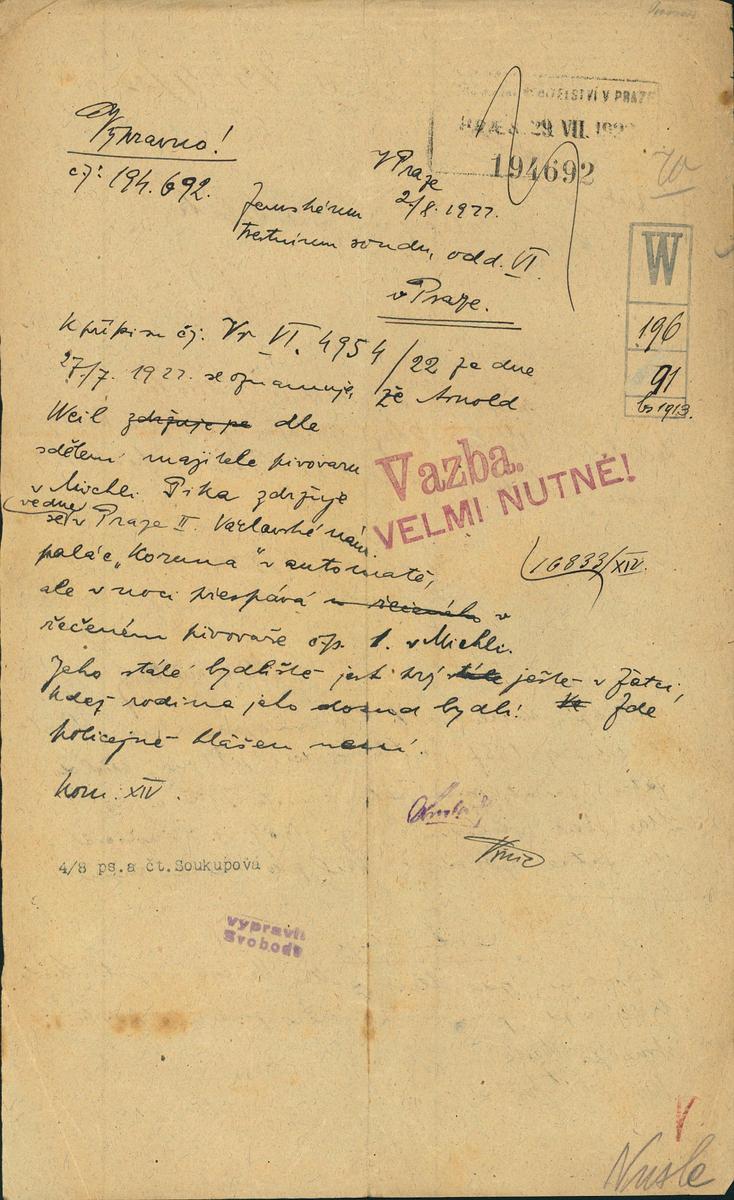 Vypravno!
čj: 194.692.
ŘEDITELSTVÍ V PRAZE
29. VII. 192
194692
V Praze
2/8. 1922.
Zemskému
trestnímu soudu, odd. VI
v Praze.
W
196
91
bs 1913.
K přípisu čj. Vr VI. 4954/22 ze dne
27/7. 1922. se oznamuje, že Arnold
Weil zdržuje se dle
sdělení majitele pivovaru
v Michli Pika zdržuje
ve dne
se v Praze II. Václavské nám.
palác „Koruna" v automatě,
ale v noci přespává v řečeného v
řečeném pivovaře čp. 1. v Michli.
Jeho stálé bydliště jest prý stále ještě v Žatci,
kdež rodina jeho dosud bydlí. Zde
policejně hlášen není.
Vazba.
VELMI NUTNÉ!
16833/XIV.
Kom. XIV.
4/8 ps.a čt.Soukupová
vypravil
Svoboda
Nusle